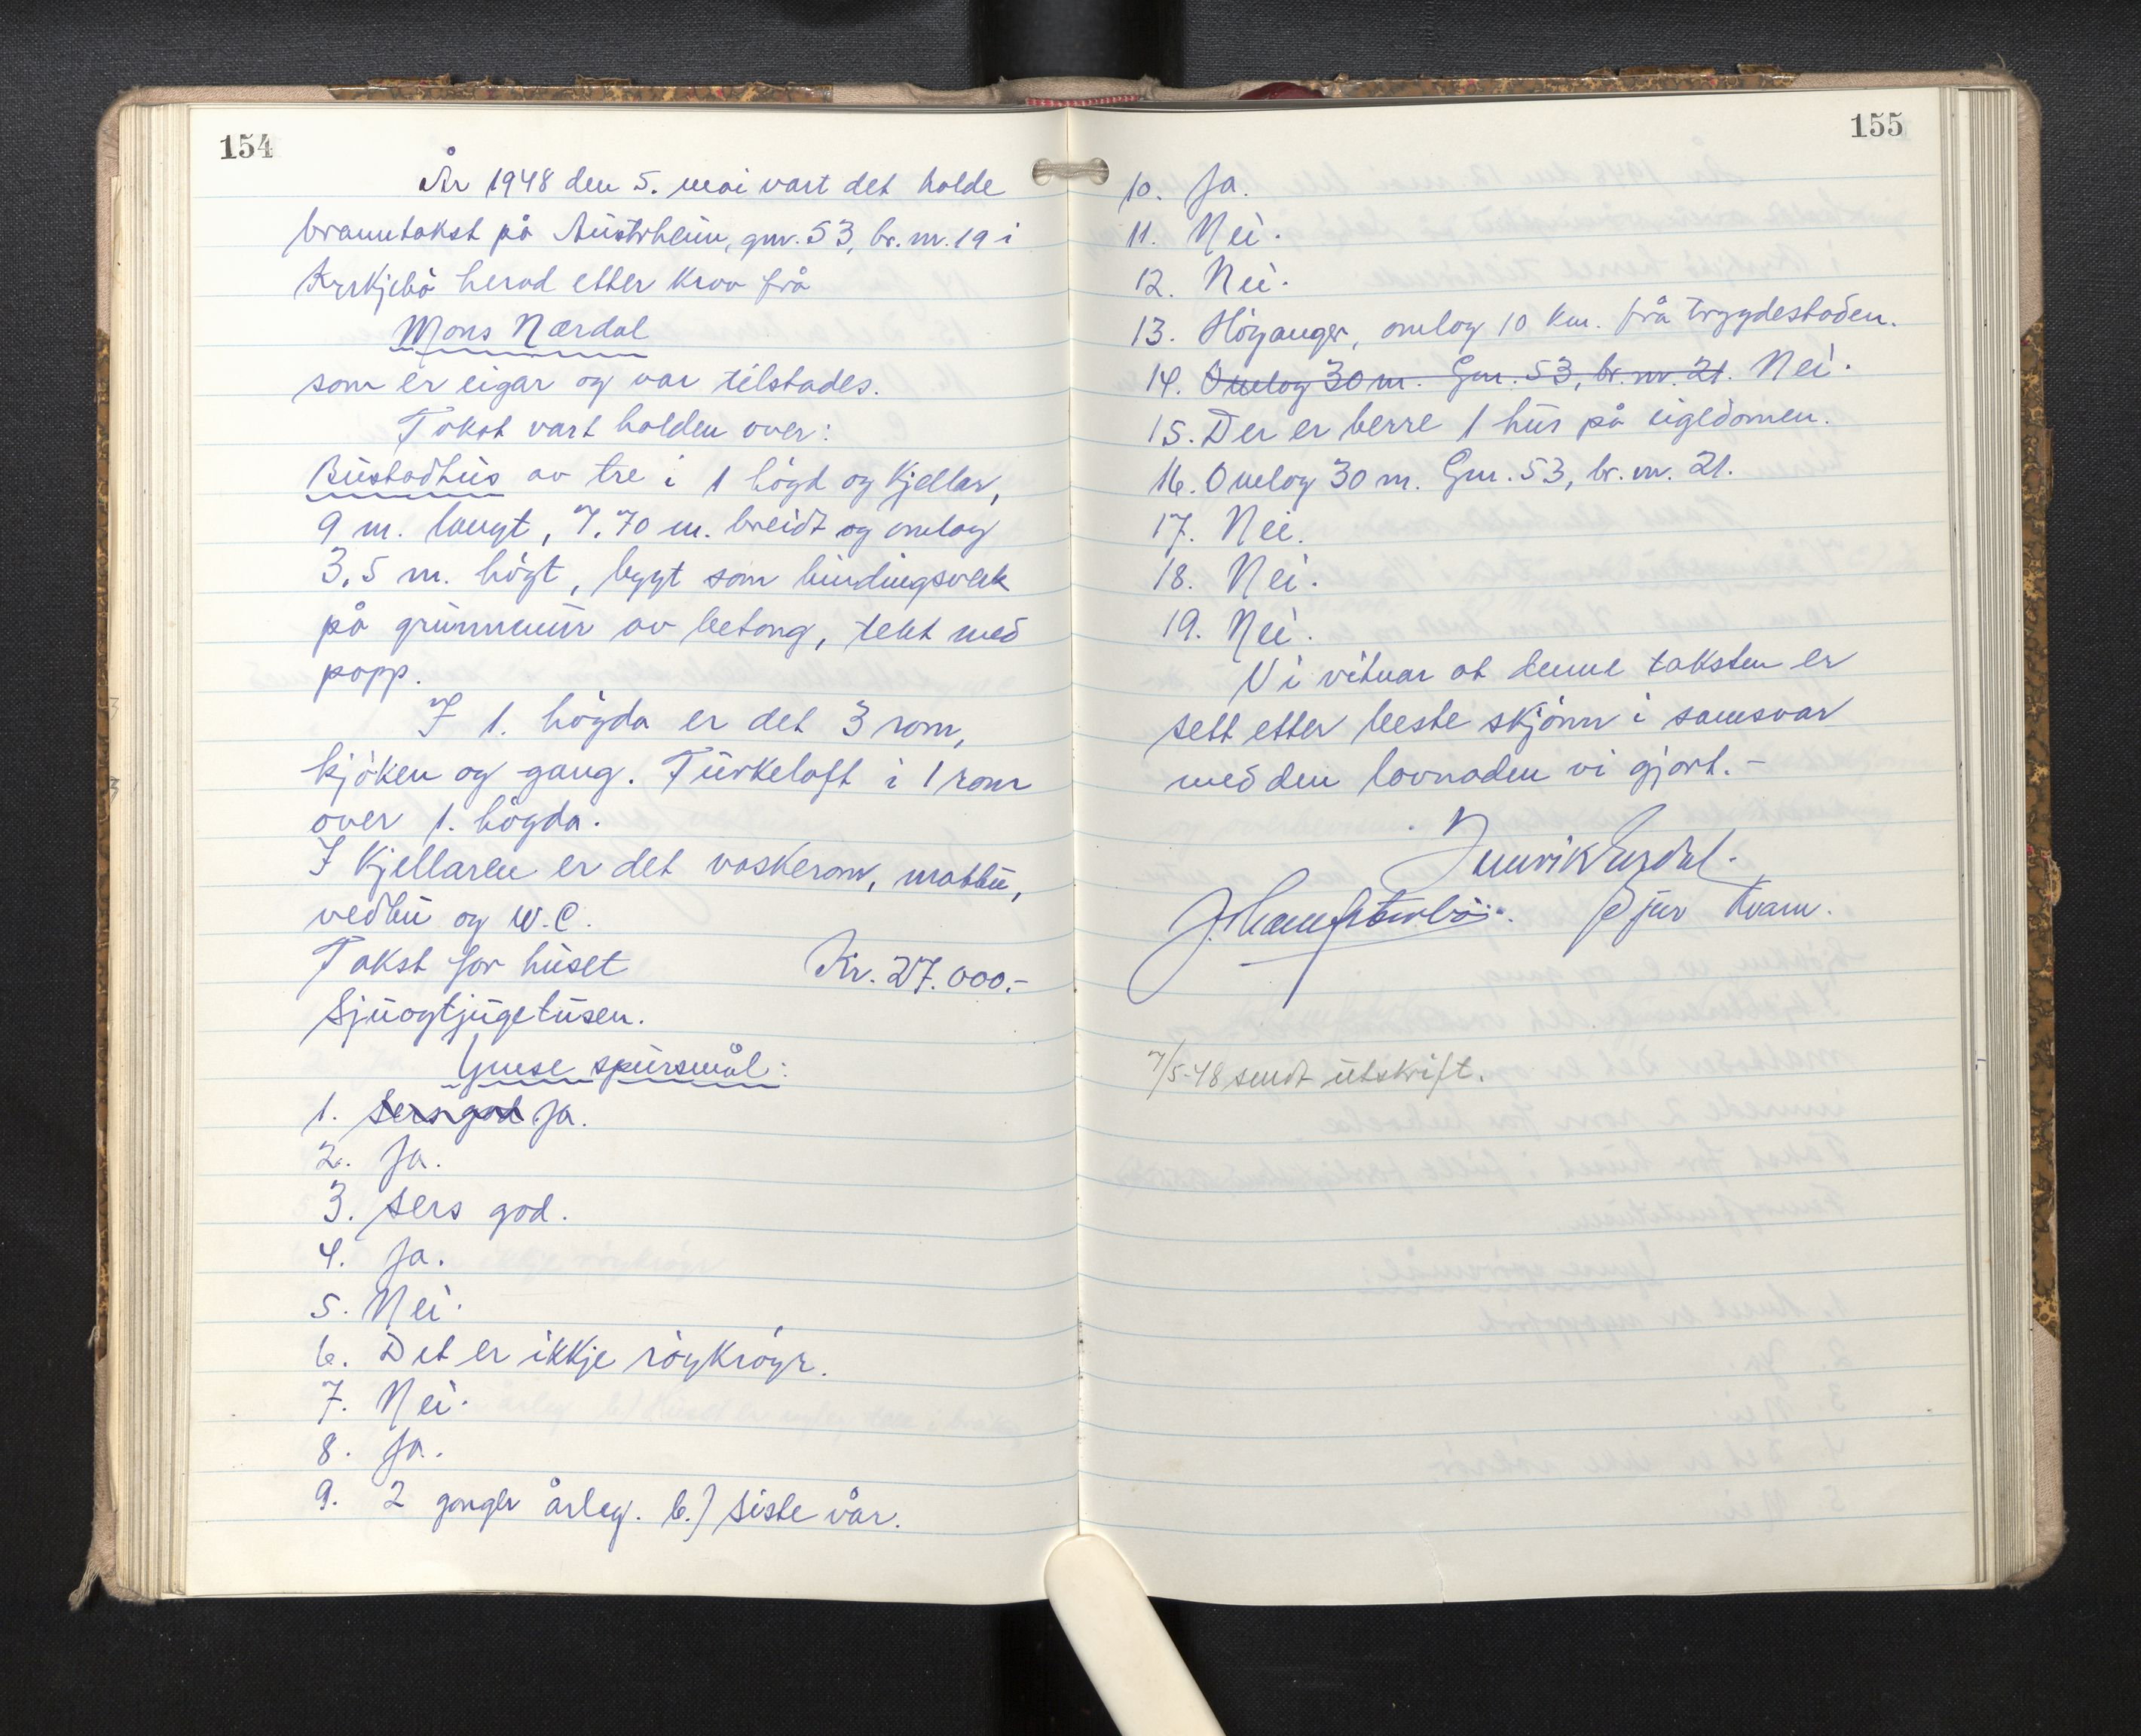 154
År 1948 den 5. mai vart det halde
branntakst på Austrheim, gnr. 53, br. nr. 19 i
Kyrkjebø herad etter krav frå
Mons Nærdal
som er eigar og var tilstades.
Takst vart halden over:
Bustadhus av tre i 1 høgd og kjellar,
9 m. langt, 7.70 m. breidt og omlag
3,5 m. høgt, bygt som bindingsverk
på grunnmur av betong, tekt med
papp.
I 1. høgda er det 3 rom,
kjøken og gang. Turkeloft i 1 rom
over 1. høgda.
I kjellaren er det vaskerom, matbu,
vedbu og W.C.
Takst for huset Kr. 27.000.-
Sjuogtjugetusen.
Ymse spursmål:
1. Sers god Ja.
2. Ja.
3. Sers god.
4. Ja.
5. Nei.
6. Det er ikkje röykröyr.
7. Nei.
8. Ja.
9. 2 gonger årleg. b.) Siste vår.
155
10. Ja.
11. Nei.
12. Nei.
13. Höyanger, omlag 10 km. frå trygdestaden.
14. Omlag 30 m. Gnr. 53, br. nr. 21. Nei.
15. Der er berre 1 hus på eigedomen.
16. Omlag 30 m. Gnr. 53, br. nr. 21.
17. Nei.
18. Nei.
19. Nei.
Vi vitnar at denne taksten er
sett etter beste skjönn i samsvar
med den lovnaden vi gjort.-
Kvam.
7/5-48 sendt utskrift.